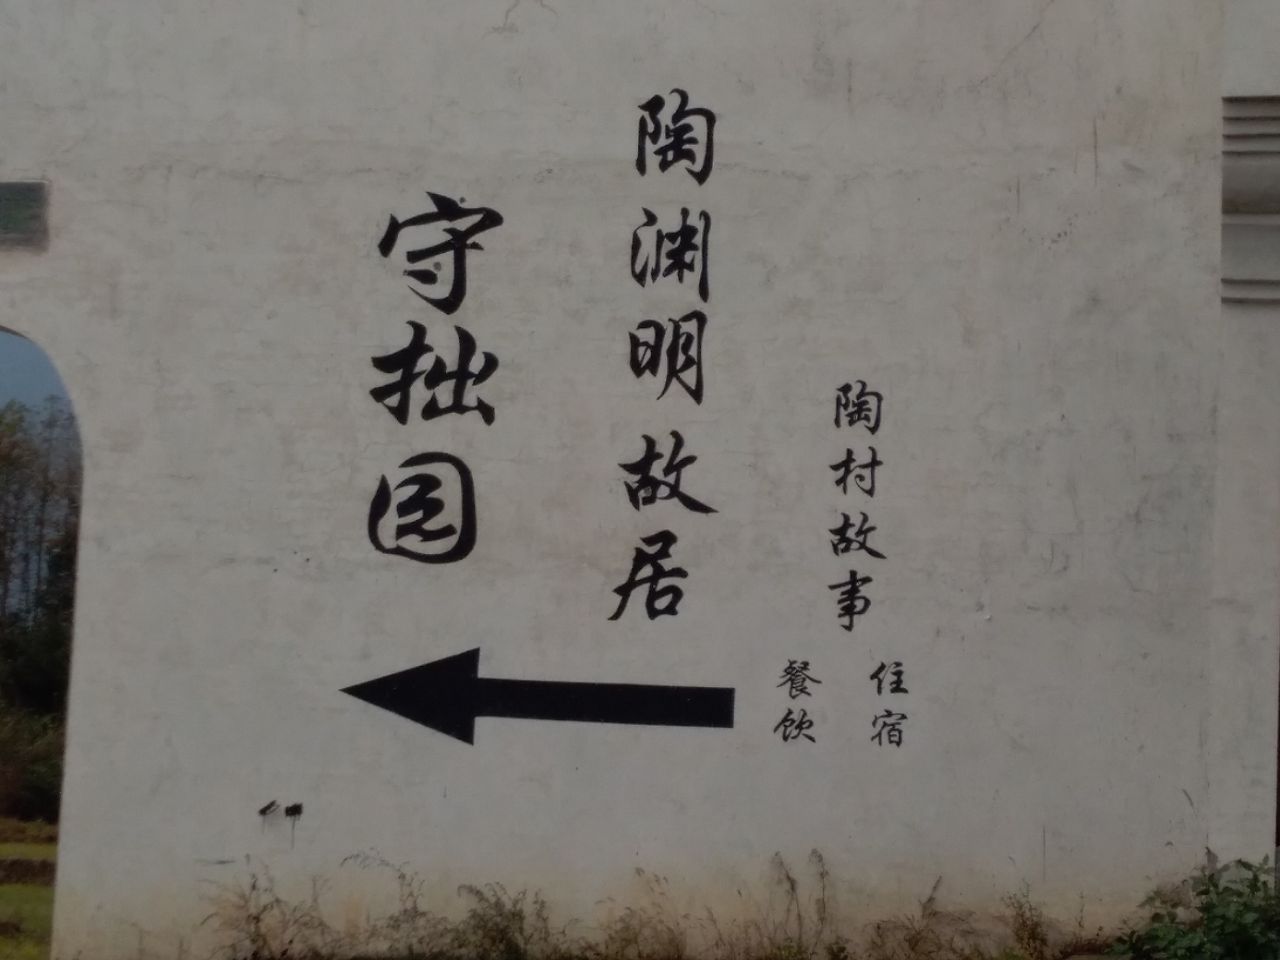 陶村故事
住宿
餐饮
陶渊明故居
守拙园